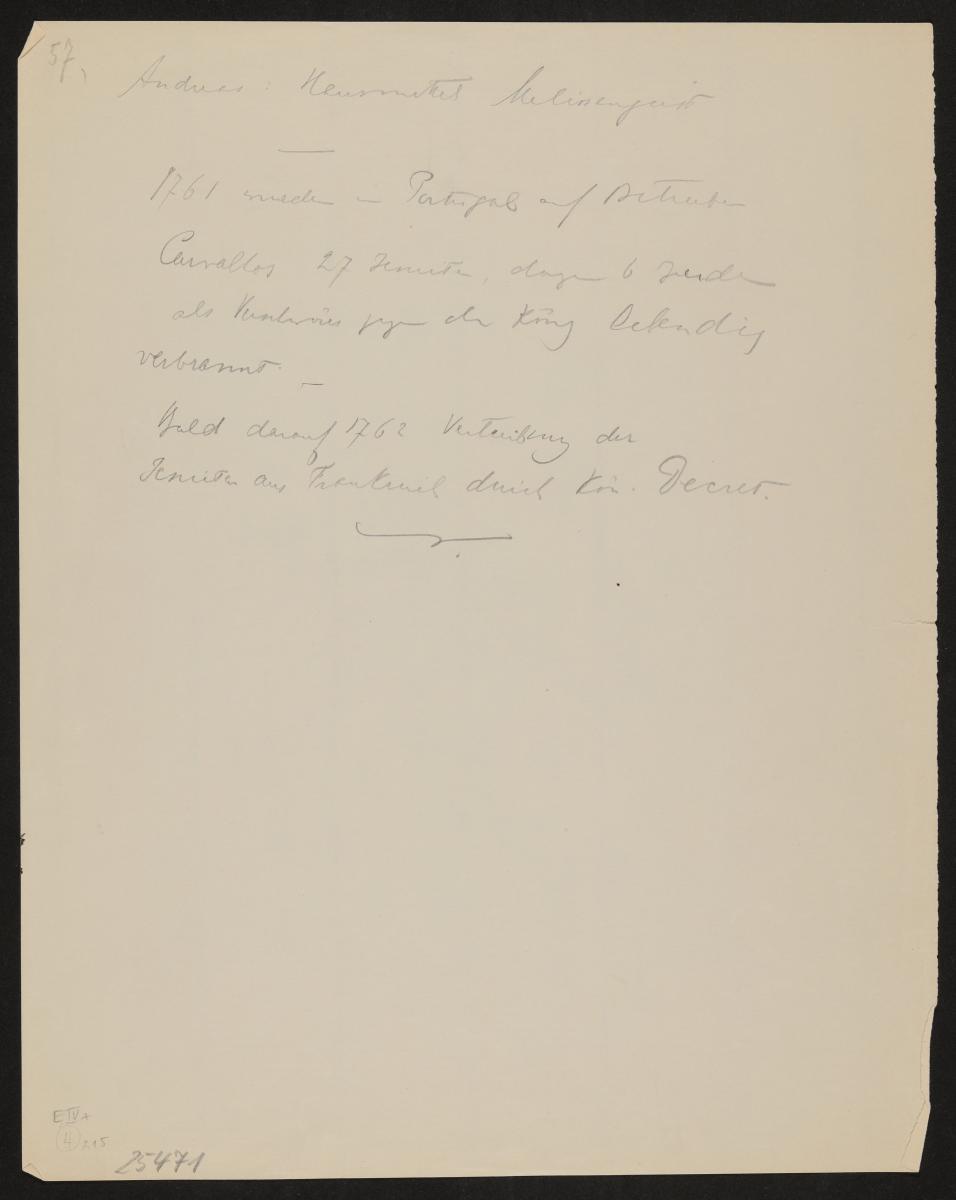 57,
Andreas: Hausmittel Melissengeist
1761 wurden in Portugal auf Betreiben
Carvallos 27 Jesuiten, dazu 6 Juden
als Verschwörer gegen den König lebendig
verbrannt.
Bald darauf 1762 Vertreibung der
Jesuiten aus Frankreich durch Kön. Decret.
E IV
4 215
25471